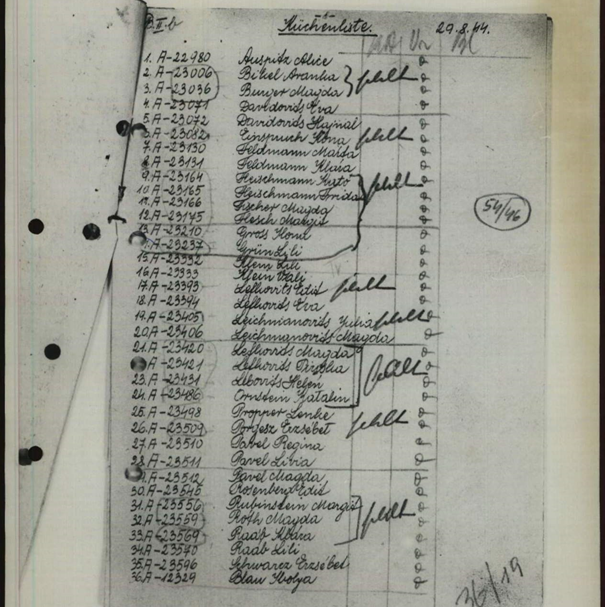 B.II.b Küchenliste. 29.8.44.
1. A-22980 Auspitz Alice
2. A-23006 Bikel Aranka
3. A-23036 Burger Magda fehlt
4. A-23071 Davidovits Eva
5. A-23072 Davidovits Hajnal
6. A-23082 Einspruch Ilona fehlt
7. A-23130 Feldmann Marta
8. A-23131 Feldmann Klara
9. A-23164 Fleischmann Kató
10. A-23165 Fleischmann Frida fehlt
11. A-23166 Fischer Magda
12. A-23175 Flesch Margit
13. A-23210 Gross Ilona
14. A-23237 Grün Lili
15. A-23332 Klein Lili
16. A-23333 Klein Vali
17. A-23393 Lefkovits Edit fehlt
18. A-23394 Lefkovits Eva
19. A-23405 Leichmanovits Julia fehlt
20. A-23406 Leichmanovits Magda
21. A-23420 Lefkovits Magda
22. A-23421 Lefkovits Piroska fehlt
23. A-23431 Lebovits Helen
24. A-23486 Ornstein Katalin
25. A-23498 Propper Lenke
26. A-23509 Porjesz Erzsébet fehlt
27. A-23510 Pavel Regina
28. A-23511 Pavel Livia
29. A-23512 Pavel Magda
30. A-23545 Rosenberg Edit
31. A-23556 Rubinstein Margit
32. A-23559 Roth Magda fehlt
33. A-23569 Raab Klara
34. A-23570 Raab Lili
35. A-23596 Schwarcz Erzsébet
36. A-12329 Blau Ibolya
54/46
36/19